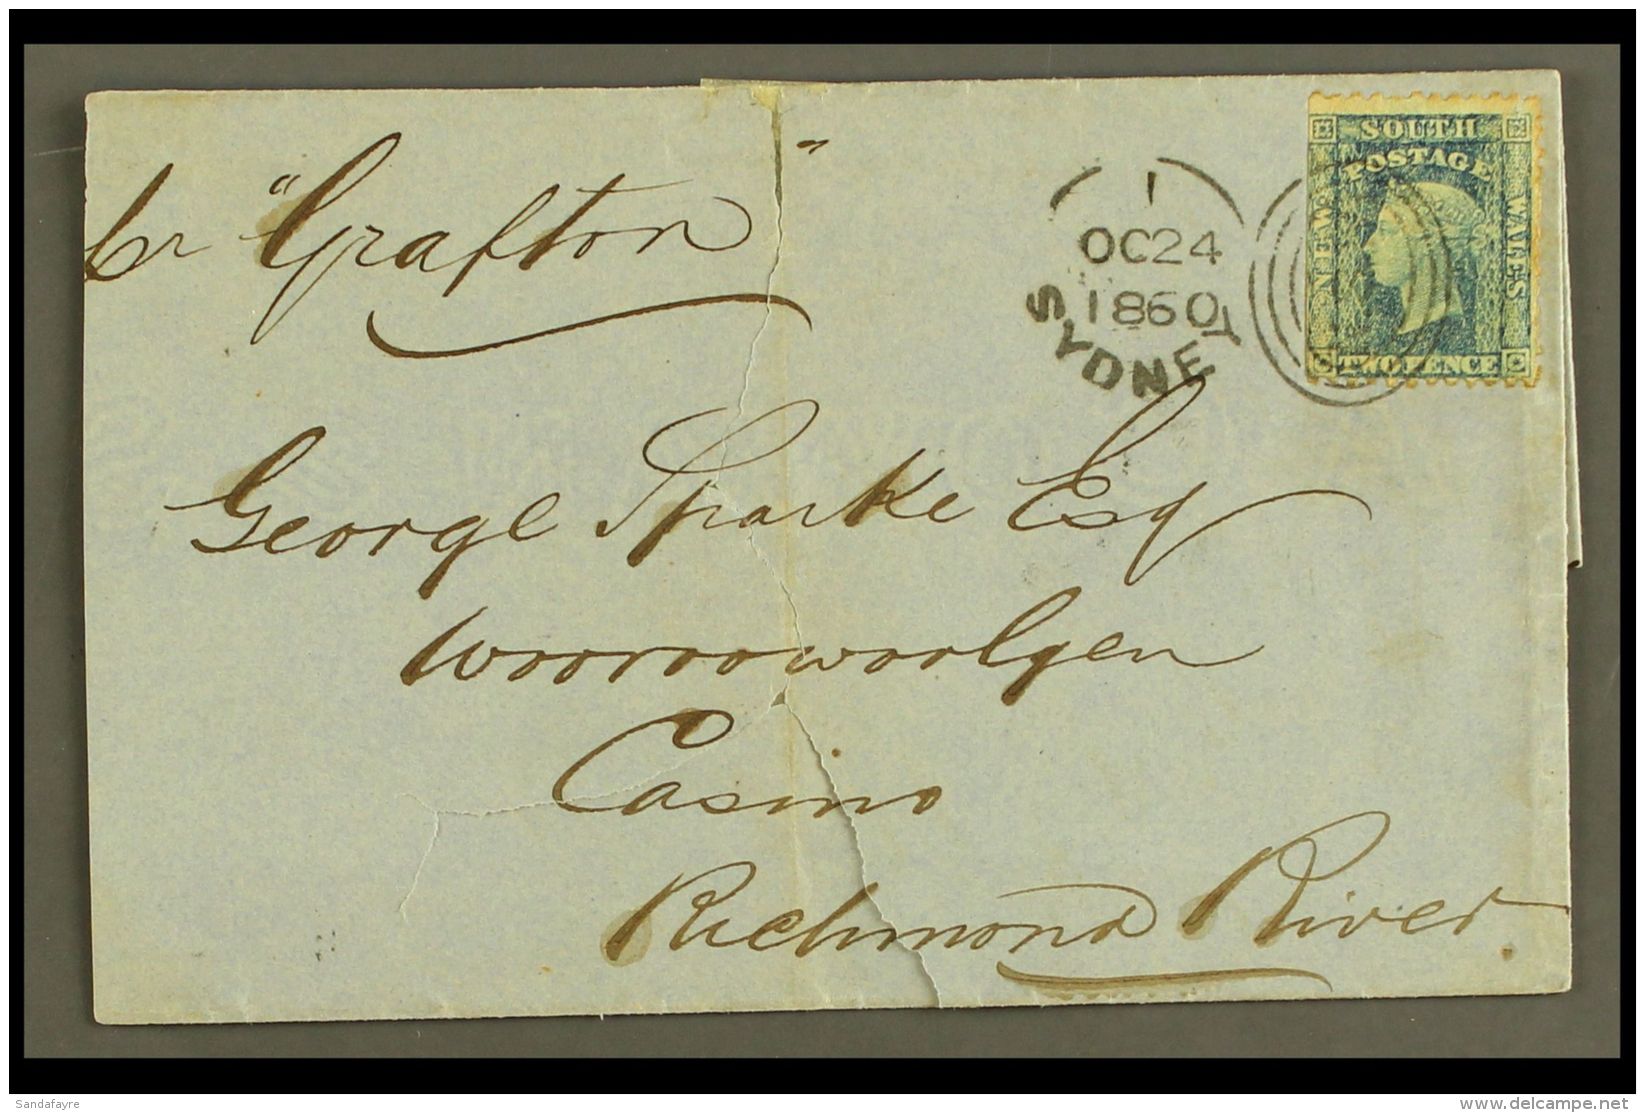 pr "Grafton"
1
OC24
1860
SYDNEY
SOUTH
POSTAGE
NEW
WALES
TWO PENCE
George Sparke Esq
Wooroowoolgen
Casino
Richmond River
Sandafayre
www.delcampe.net